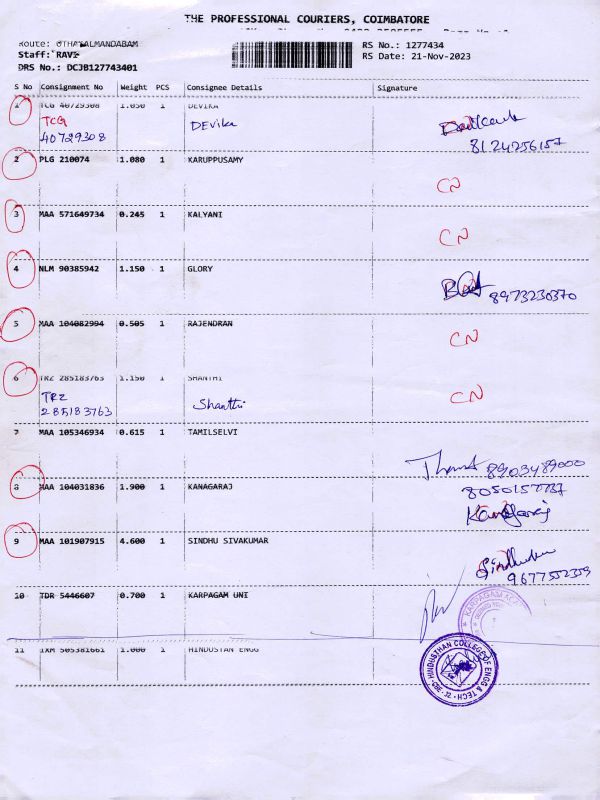 THE PROFESSIONAL COURIERS, COIMBATORE
Route: OTHAKALMANDABAM
Staff: RAVI
DRS No.: DCJB127743401
RS No.: 1277434
RS Date: 21-Nov-2023
S No Consignment No Weight PCS Consignee Details Signature
1 TCG 40729308 1.050 1 DEVIKA
TCG DEvika
40729308 8124256157
2 PLG 210074 1.080 1 KARUPPUSAMY
CN
3 MAA 571649734 0.245 1 KALYANI
CN
4 NLM 90385942 1.150 1 GLORY
8973230370
5 MAA 104082994 0.505 1 RAJENDRAN
CN
6 TRZ 285183763 1.150 1 SHANTHI
TRZ Shanthi CN
285183763
7 MAA 105346934 0.615 1 TAMILSELVI
8903489000
8 MAA 104031836 1.900 1 KANAGARAJ
Kanagaraj
9 MAA 101907915 4.600 1 SINDHU SIVAKUMAR
Sindhu
9677552359
10 TDR 5446607 0.700 1 KARPAGAM UNI
KARPAGAM
11 IXM 505381661 1.000 1 HINDUSTAN ENGG
HINDUSTHAN COLLEGE OF ENGG & TECH
CBE-32